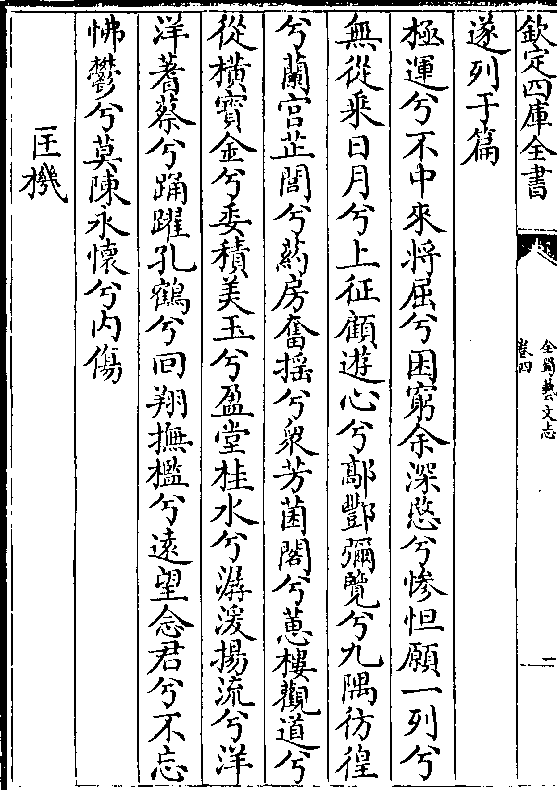 欽定四庫全書
全蜀藝文志
卷四
二
遂列于篇
極運兮不中來將屈兮困窮余深愍兮惨怛願一列兮
無從乘日月兮上征顧遊心兮鄗酆彌覽兮九隅彷徨
兮蘭宫芷閭兮葯房奮揺兮衆芳菌閣兮蕙樓觀道兮
從横寳金兮委積美玉兮盈堂桂水兮潺湲揚流兮洋
洋蓍蔡兮踊躍孔鶴兮回翔撫檻兮遠望念君兮不忘
怫鬱兮莫陳永懷兮内傷
匡機